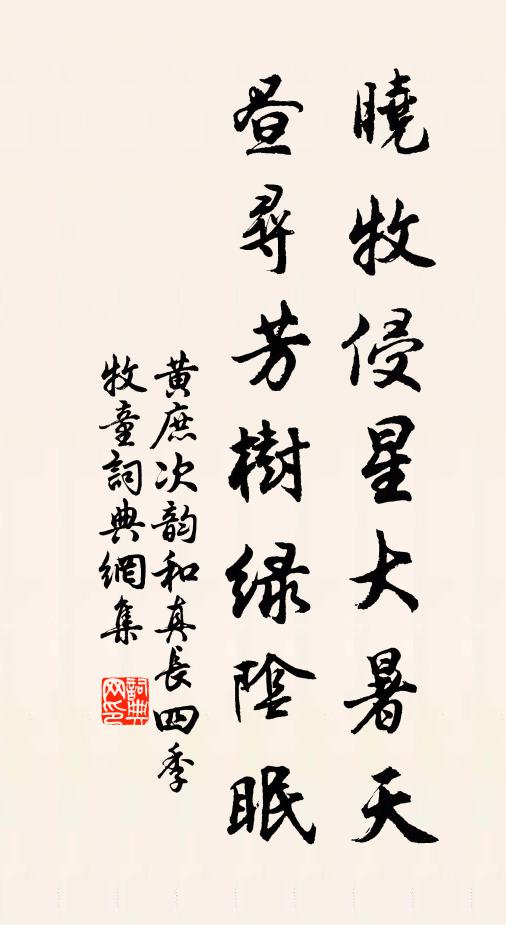 曉牧侵星大暑天
昼尋芳樹绿陰眠
黃庶次韵和真長四季
牧童詞典網集
詞典网印